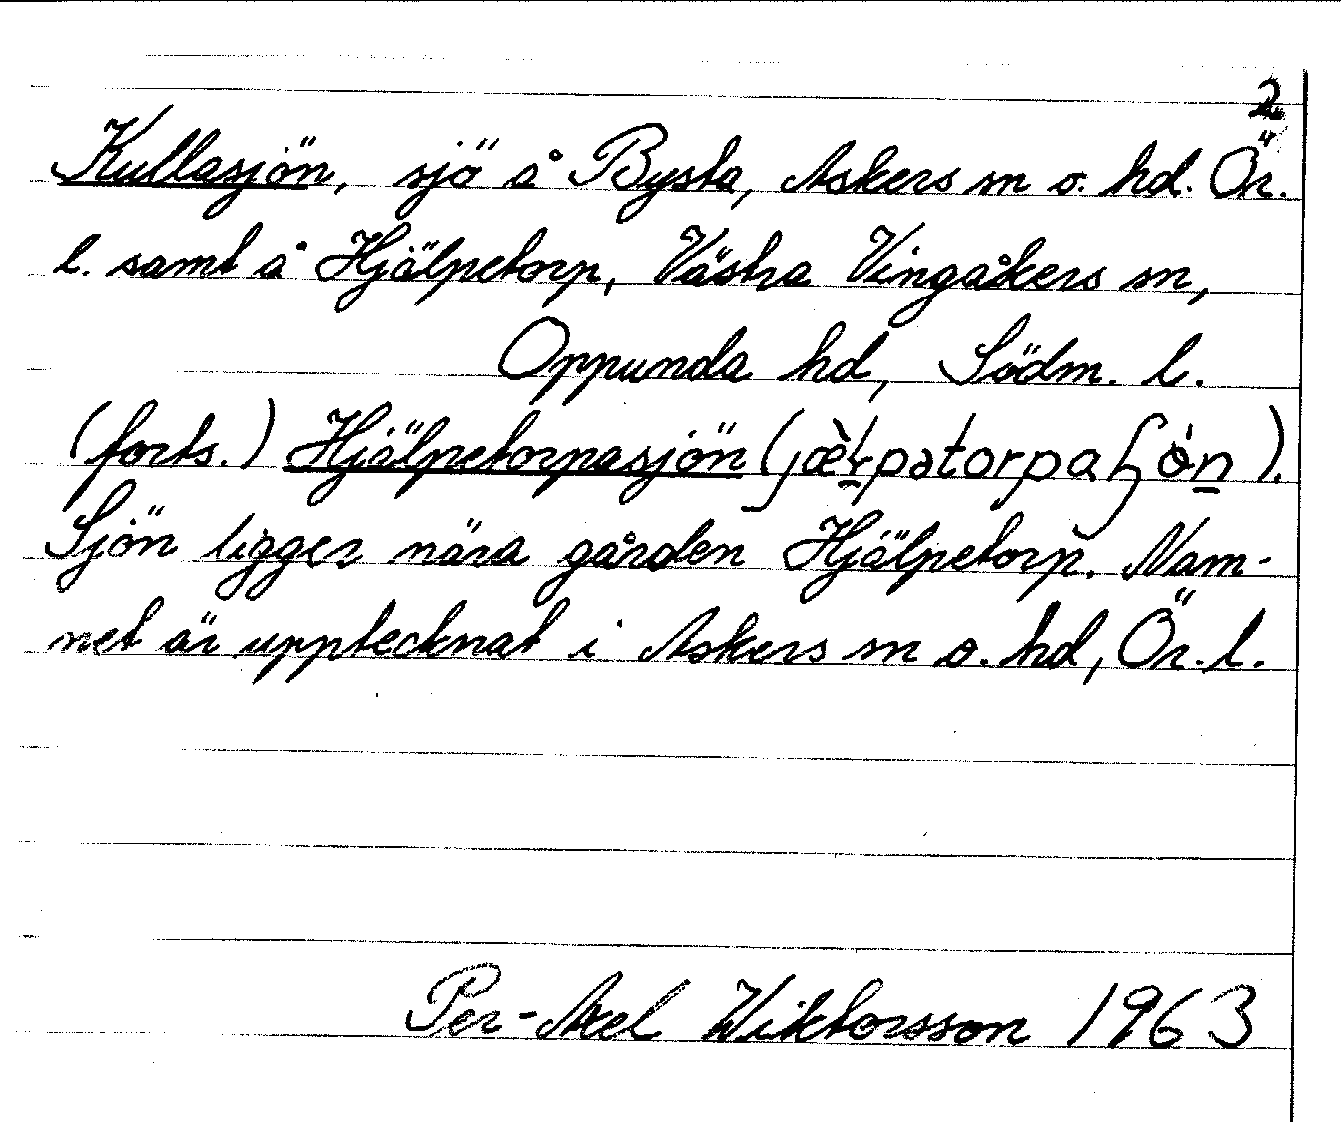 2
Kullasjön, sjö å Bysta, Askers sn o. hd. Ör.
l. samt å Hjälpetorp, Västra Vingåkers sn,
Oppunda hd, Södm. l.
(forts.) Hjälpetorpasjön
Sjön ligger nära gården Hjälpetorp. Nam-
net är upptecknat i Askers sn o. hd, Ör. l.
Per-Axel Wiktorsson 1963